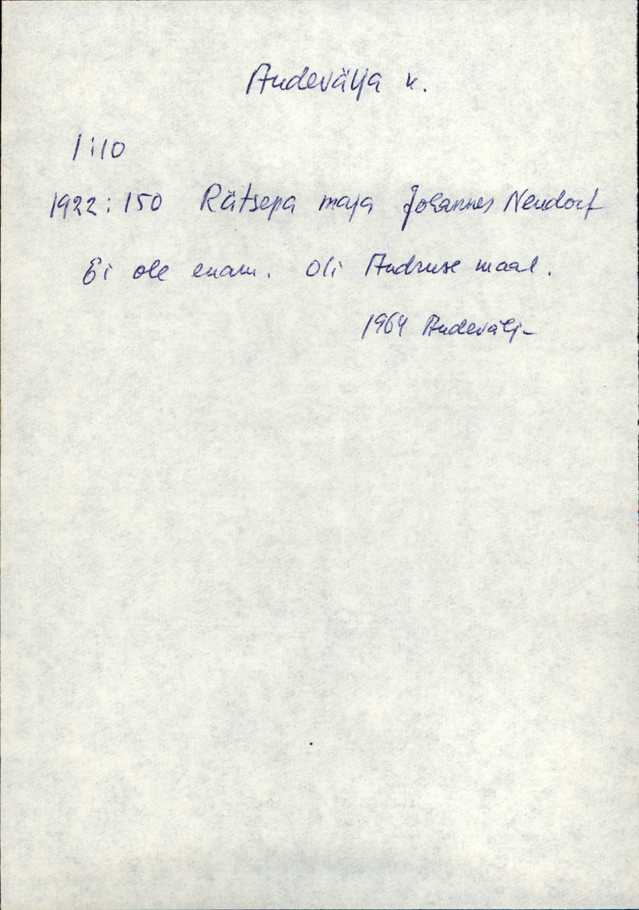 Andevälja k.
1:10
1922:150 Rätsepa maja Johannes Neudorf
Ei ole enam. Oli Andruse maal.
1964 Andevälj-